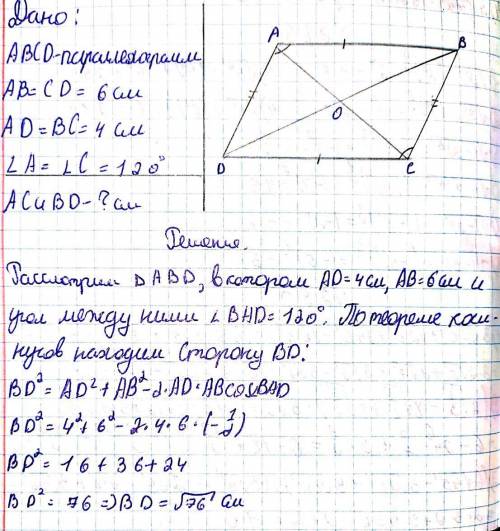 Дано:
ABCD-параллелограмм
AB=CD=6см
AD=BC=4см
∠A=∠C=120°
AC и BD-?см
A
B
O
D
C
Решения.
Рассмотрим △ABD, в котором AD=4см, AB=6см и
угол между ними ∠BAD=120°. По теореме коси-
нусов находим сторону BD:
BD²=AD²+AB²-2·AD·ABcosBAD
BD²=4²+6²-2·4·6·(-1/2)
BD²=16+36+24
BD²=76=>BD=√76 см